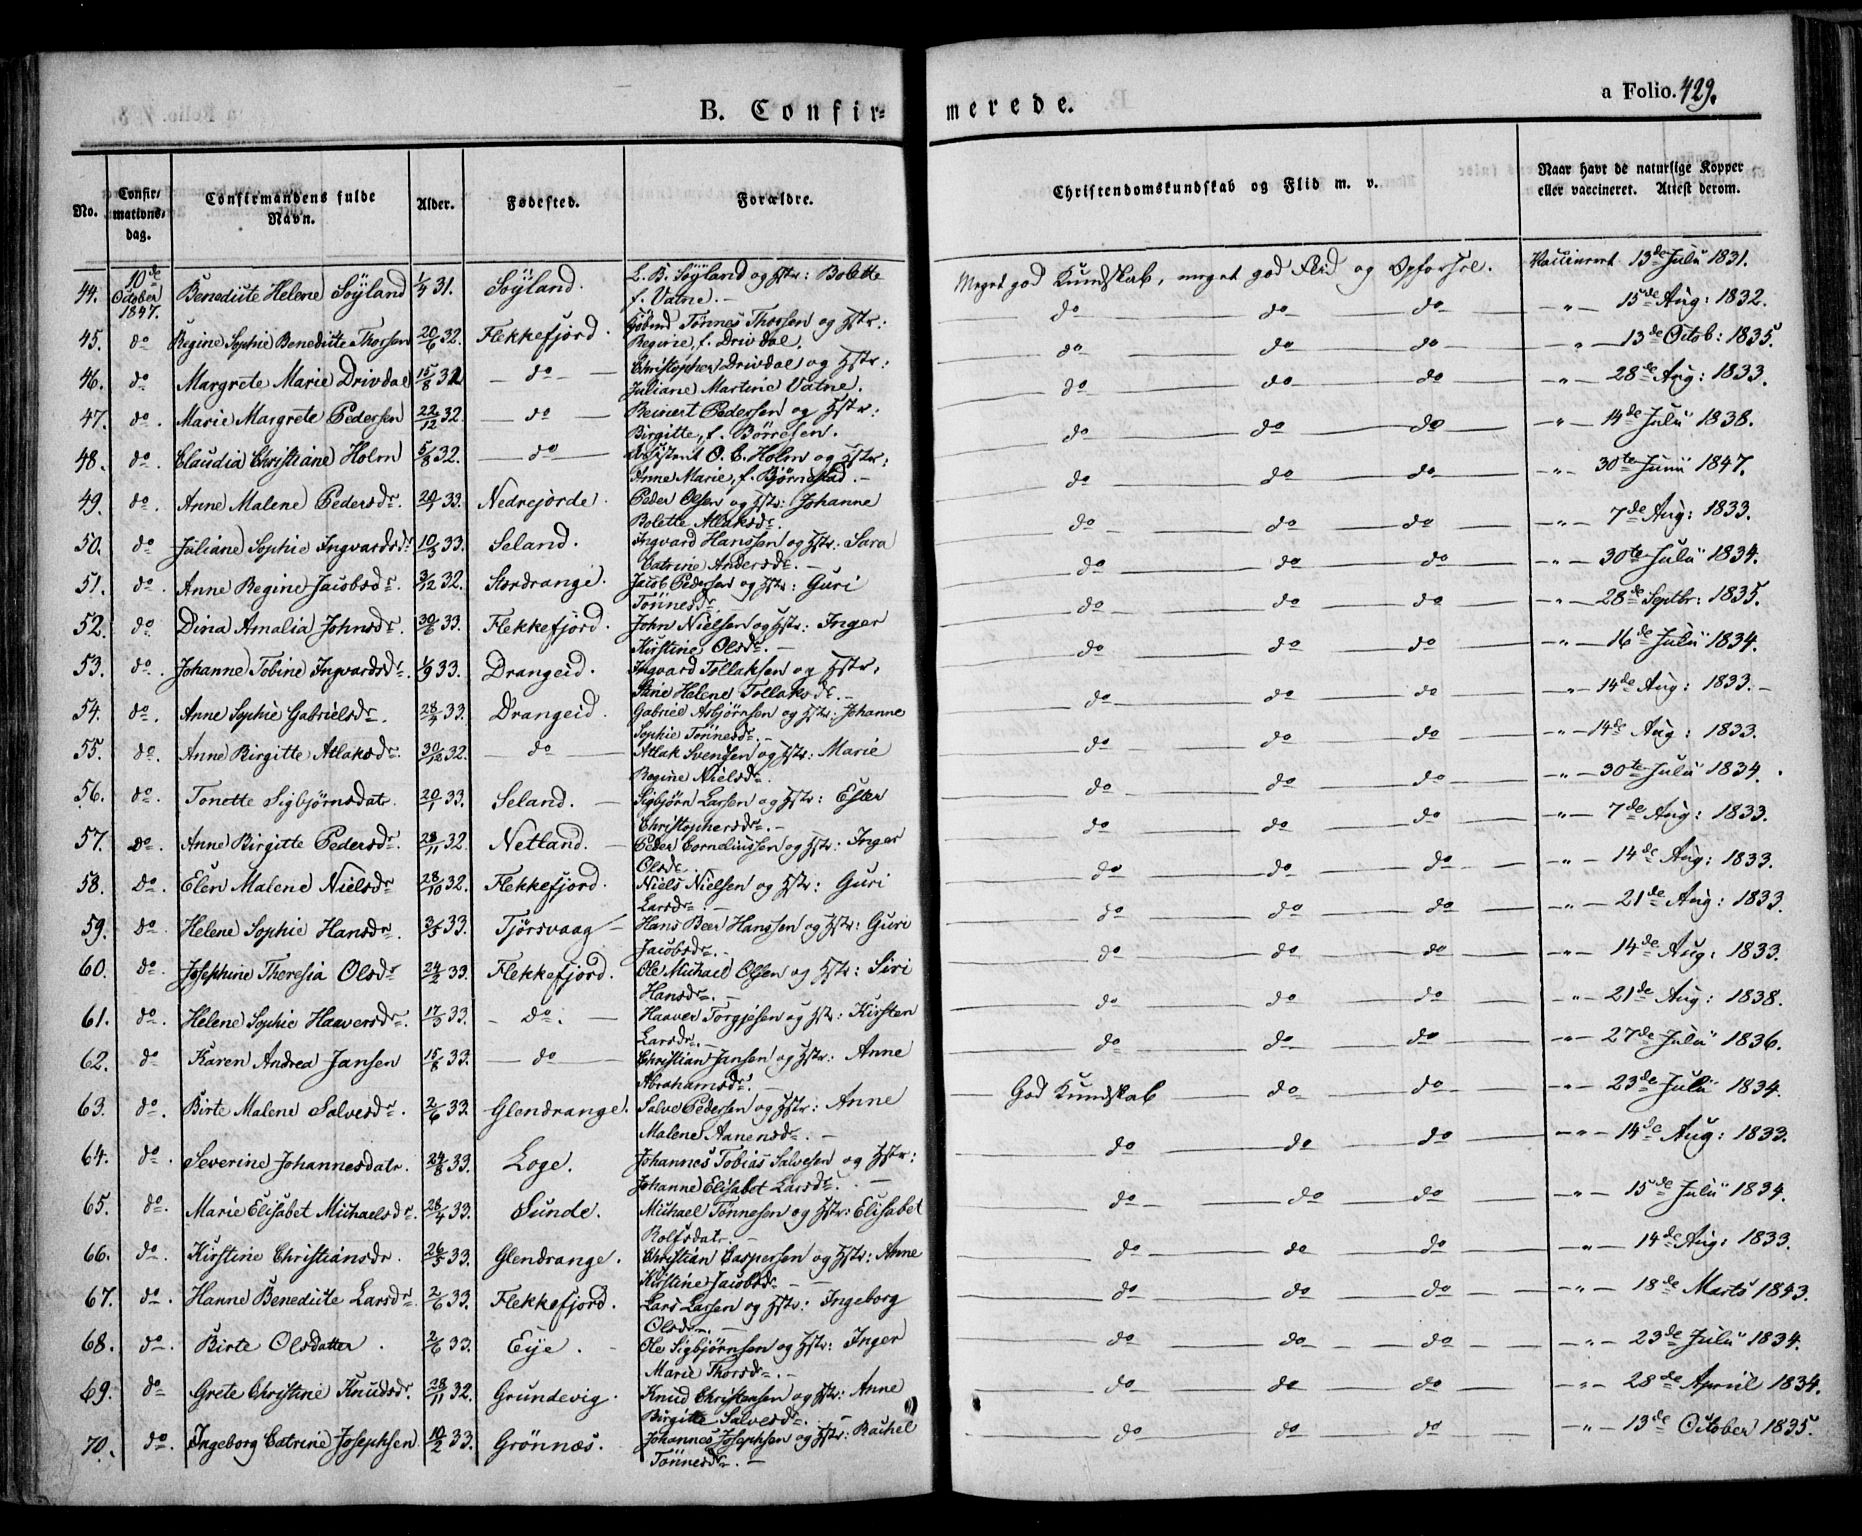 B. Confir-
merede.
a Folio. 429.
No.
Confir-
mations-
dag.
Confirmandens fulde
Navn.
Alder.
Fødested.
Forældre.
Christendomskundskab og Flid m. v.
Naar havt de naturlige Kopper
eller vaccineret. Attest derom.
44. 10de October 1847. Benedicte Helene Søyland 1/4 31. Søyland. L. B. Søyland og Hstr: Bolette
f. Vatne. —
Meget god Kundskab, meget god Flid og Opførsel. Vaccineret 13de Julii 1831.
45. do Regine Sophie Benedicte Thorsen 20/6 32. Flekkefjord. Tønnes Thorsen og Hstr:
Regine, f. Drivdal.
do do do —"— 15de Aug: 1832.
46. do. Margrete Marie Drivdal 15/8 32 — do — Christopher Drivdal og Hstr:
Juliane Martine Vatne.
do do do —"— 13de Octob: 1835.
47. do. Marie Margrete Pedersen 22/12 32. — do — Reinert Pedersen og Hstr:
Birgitte, f. Børresen.
do do do —"— 28de Aug: 1833.
48. do. Claudia Christiane Holm 5/8 32. — do — Assistent O. C. Holm og Hstr:
Anne Marie, f. Bjørnestad. —
do do do —"— 14de Julii 1838.
49. do. Anne Malene Pedersdr. 33. Nedrejorde. Peder Olsen og Hstr: Johanne
Bolette Atlaksdr.
do do do —"— 30te Junii 1847.
50. do. Juliane Sophie Ingvardsdr 10/3 33. Seland. Ingvard Hanssen og Hstr: Sara
Catrine Andersdr. —
do do do —"— 7de Aug: 1833.
51. do. Anne Regine Jacobsdr. 3/12 32. Stordrange. Jacob Pedersen og Hstr: Guri
Tønnesdr.
do do do —"— 30te Julii 1834.
52. do. Dina Amalia Johnsdr. 30/6 33. Flekkefjord. John Nielsen og Hstr: Inger
Kirstine Olsdr. —
do do do —"— 28de Septbr: 1835.
53. do. Johanne Tobine Ingvardsdr. 1/9 33. Drangeid. Ingvard Tollaksen og Hstr:
Helene Tollaksdr. —
do do do —"— 16de Julii 1834.
54. do. Anne Sophie Gabrielsdr. 28/4 33. Drangeid. Gabriel Asbjørnsen og Hstr: Johanne
Sophie Tønnesdr. —
do do do —"— 14de Aug: 1833. —
55. do. Anne Birgitte Atlaksdr. 30/12 32. — do Atlak Svensen og Hstr: Marie
Regine Nielsdr.
do do do —"— 14de Aug: 1833.
56. do. Tonette Sigbjørnsdatr. 20/1 33. Seland. — Sigbjørn Larsen og Hstr: Ester
Christophersdr. —
do do do —"— 30te Julii 1834.
57. Do. Anne Birgitte Pedersdr. 28/11 32. Netland. — Peder Corneliussen og Hstr: Inger
Olsdr.
do do do —"— 7de Aug: 1833.
58. Do. Elen Malene Nielsdr 28/10 32. Flekkefjord. Niels Nielsen og Hstr: Guri
Larsdr. —
do do do —"— 14de Aug: 1833.
59. do. Helene Sophie Hansdr. 3/5 33. Tjørsvaag — Hans Beer Hanssen og Hstr: Guri
Jacobsdr. —
do do do —"— 21de Aug: 1833.
60. do. Josephine Theresia Olsdr 24/2 33. Flekkefjord. Ole Michael Olsen og Hstr: Siri
Hansdr. —
do do do —"— 14de Aug: 1833.
61. do. Helene Sophie Haaversdr. 17/3 33. — Do. — Haaver Torgjesen og Hstr: Kirsten
Larsdr. —
do do do —"— 21de Aug: 1838.
62. do Karen Andrea Jansen 15/8 33. — do — Christian Jansen og Hstr: Anne
Abrahamsdr. —
do do do —"— 27de Julii 1836.
63. do. Birte Malene Salvesdr. 2/6 33. Glendrange. Salve Pedersen og Hstr: Anne
Malene Aanensdr. —
God Kundskab do do —"— 23de Julii 1834.
64. do. Severine Johannesdatr. 24/8 33. Loge. Johannes Tobias Salvesen og Hstr:
Johanne Elisabet Larsdr. —
do do do —"— 14de Aug: 1833.
65. do. Marie Elisabet Michaelsdr. 28/4 33. Sunde. Michael Tønnesen og Hstr: Elisabet
Rolfsdatr. —
do do do —"— 15de Julii 1834.
66. do. Kirstine Christiansdr. 26/5 33. Glendrange. Christian Caspersen og Hstr: Anne
Kirstine Jacobsdr. —
do do do —"— 14de Aug: 1833.
67. do. Hanne Benedicte Larsdr. 2/6 33. Flekkefjord. Lars Larsen og Hstr: Ingeborg
Olsdr. —
do do do —"— 18de Marts 1843.
68. do. Birte Olsdatter. 2/6 33. Eye. Ole Sigbjørnsen og Hstr: Inger
Marie Thorsdr. —
do do do —"— 23de Julii 1834.
69. do. Grete Christine Knudsdr. 28/11 32. Grundevig. Knud Christensen og Hstr: Anne
Birgitte Salvesdr. —
do do do —"— 28de April 1834.
70. do. Ingeborg Catrine Josephsen 10/2 33. Grønnæs. Johannes Josephsen og Hstr: Rachel
Tønnesdr. —
do do do —"— 13de October 1835.